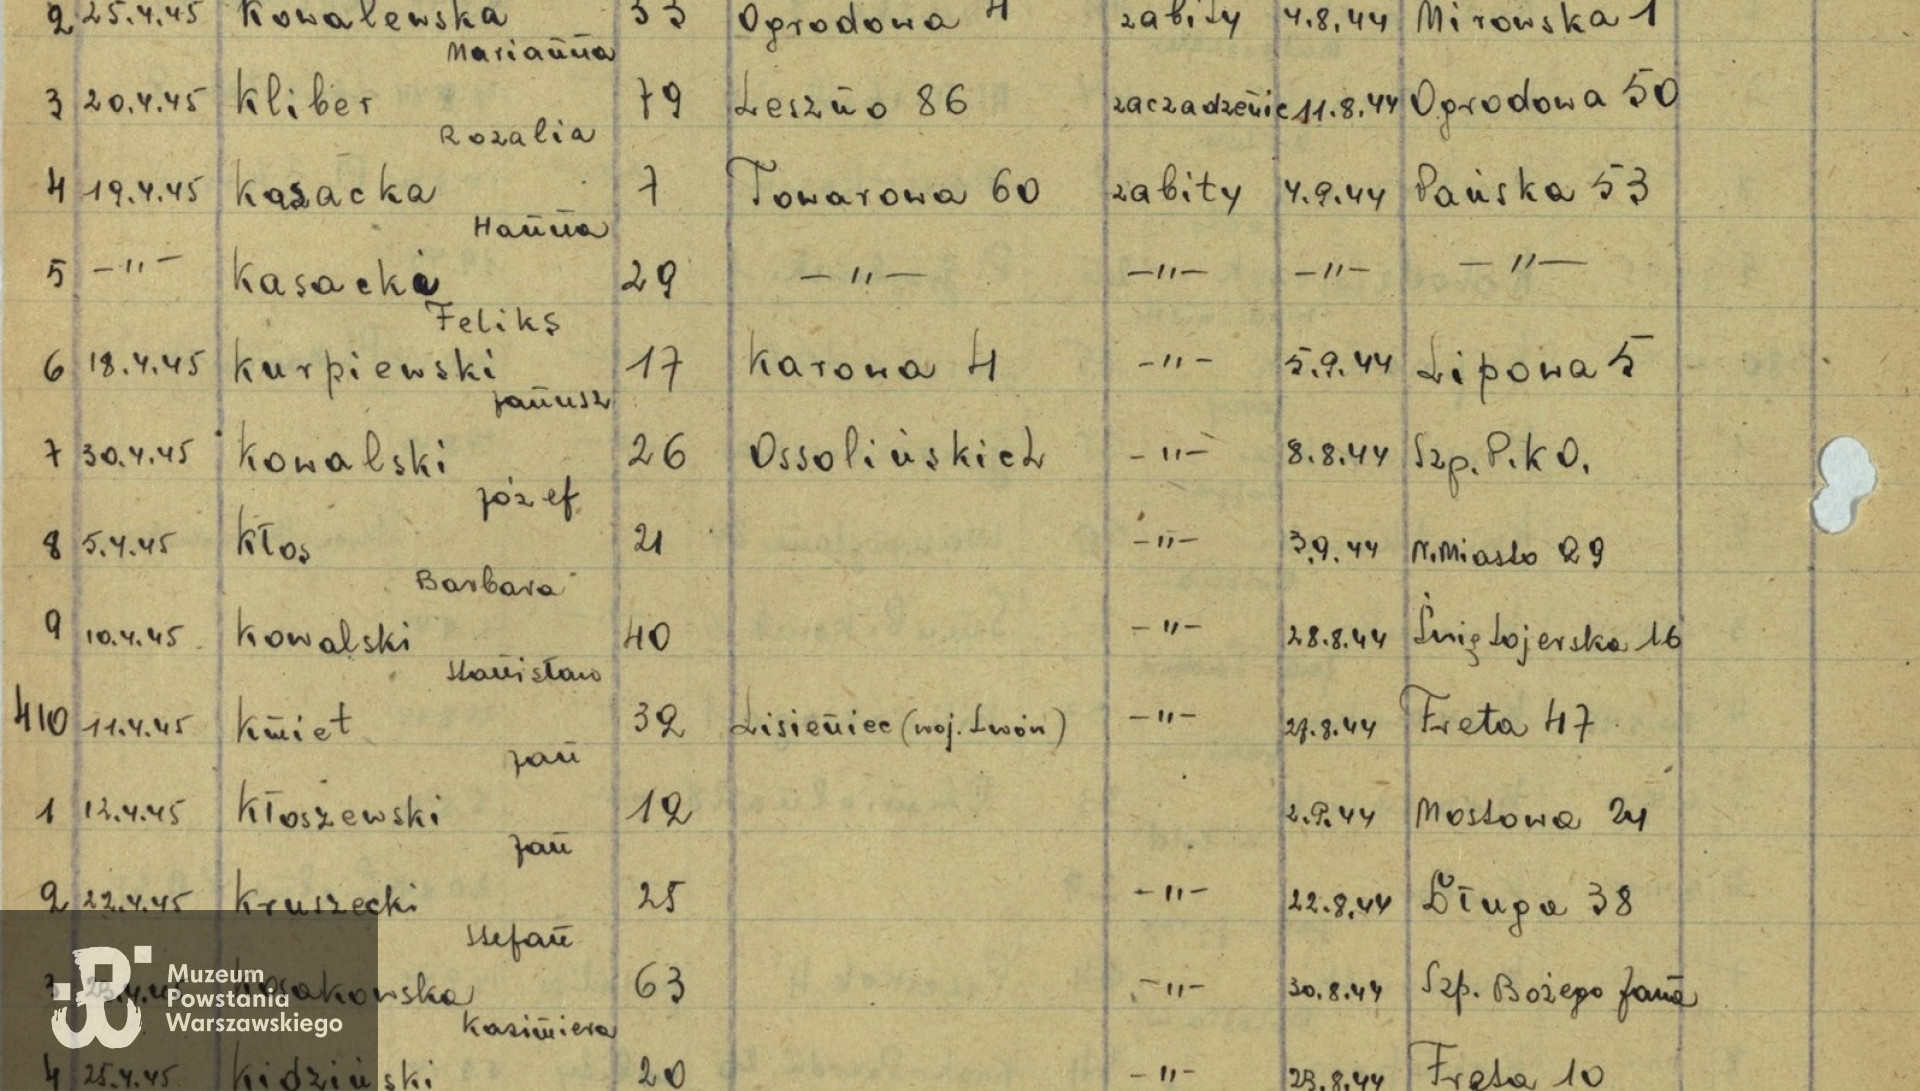 2 25.4.45 Kowalewska 33 Ogrodowa 4 zabity 4.8.44 Mirowska 1
Marianna
3 20.4.45 Kliber 79 Leszno 86 zaczadzenie 11.8.44 Ogrodowa 50
Rozalia
4 19.4.45 Kasacka 7 Towarowa 60 zabity 4.9.44 Pańska 53
Hanna
5 —"— Kasacki 29 —"— —"— —"— —"—
Feliks
6 18.4.45 Kurpiewski 17 Karowa 4 —"— 5.9.44 Lipowa 5
Janusz
7 30.4.45 Kowalski 26 Ossolińskich —"— 8.8.44 Szp. P.K.O.
Józef
8 5.4.45 Kłos 21 —"— 3.9.44 N.Miasto 29
Barbara
9 10.4.45 Kowalski 40 —"— 28.8.44 Świętojerska 16
Stanisław
410 11.4.45 Kmiet 32 Lisieniec (woj. Lwów) —"— 27.8.44 Freta 47
Jan
1 12.4.45 Kłoszewski 12 2.9.44 Mostowa 24
Jan
2 22.4.45 Kruszecki 25 —"— 22.8.44 Długa 38
Stefan
3 63 —"— 30.8.44 Szp. Bożego Jana
Kazimiera
4 25.4.45 Kidziński 20 —"— Freta 10
Muzeum
Powstania
Warszawskiego